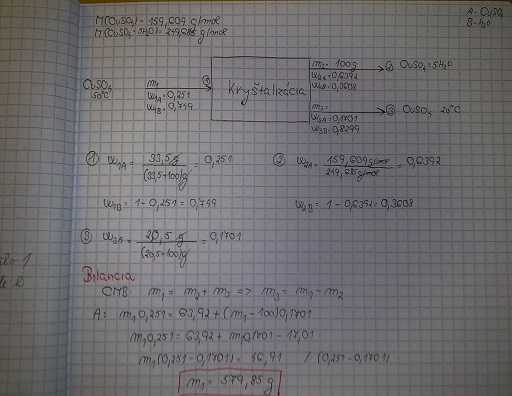 A - CuSO₄
B - H₂O
M(CuSO₄) = 159,609 g/mol
M(CuSO₄·5H₂O) = 249,685 g/mol
CuSO₄
50°C
m₁
w₁A = 0,251
w₁B = 0,749
①
Kryštalizácia
m₂ = 100g
w₂A = 0,6392
w₂B = 0,3608
② CuSO₄·5H₂O
m₃ =
w₃A = 0,1701
w₃B = 0,8299
③ CuSO₄ 20°C
① w₁A = 33,5 g / (33,5+100)g = 0,251
w₁B = 1 - 0,251 = 0,749
② w₂A = 159,609 g/mol / 249,685 g/mol = 0,6392
w₂B = 1 - 0,6392 = 0,3608
③ w₃A = 20,5 g / (20,5+100)g = 0,1701
Bilancia
CMB m₁ = m₂ + m₃ => m₃ = m₁ - m₂
A: m₁ 0,251 = 63,92 + (m₁ - 100) 0,1701
m₁ 0,251 = 63,92 + m₁ 0,1701 - 17,01
m₁ (0,251 - 0,1701) = 46,91 / (0,251 - 0,1701)
m₁ = 579,85 g